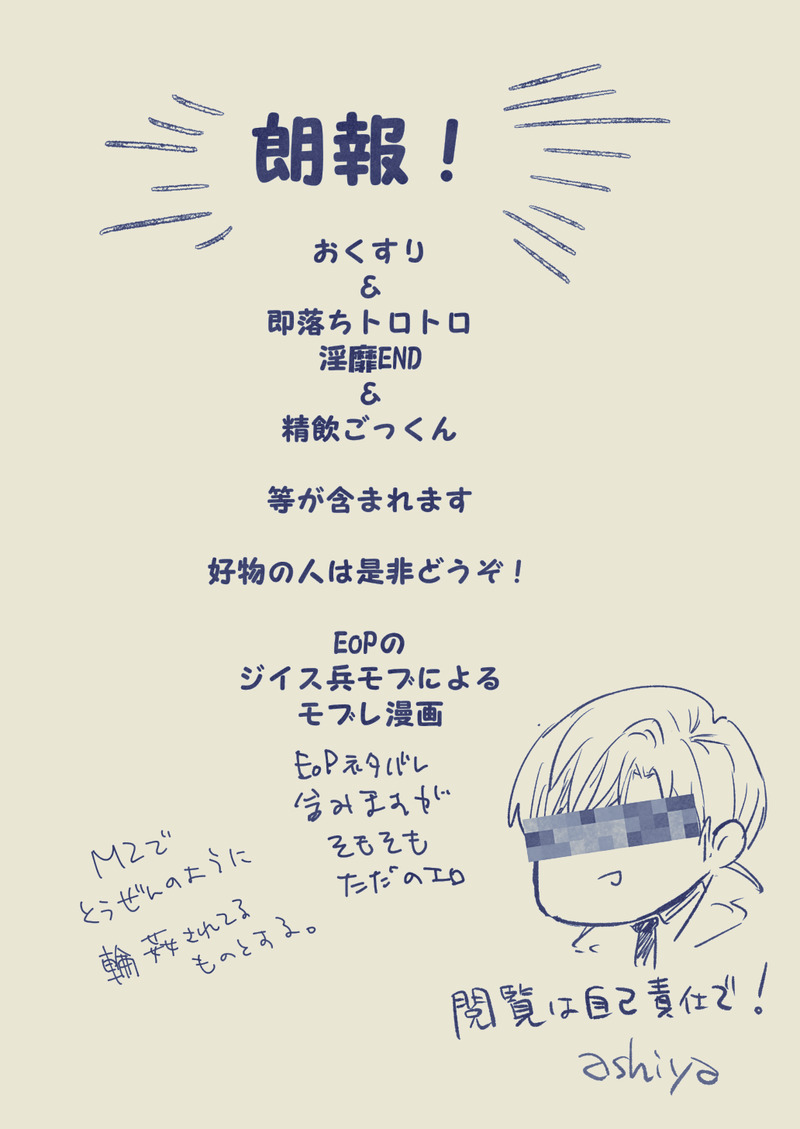 朗報！
おくすり
&
即落ちトロトロ
淫靡END
&
精飲ごっくん
等が含まれます
好物の人は是非どうぞ！
EoPの
ジイス兵モブによる
モブレ漫画
EoPネタバレ
含みますが
そもそも
ただのエロ
MZで
とうぜんのように
輪姦されてる
ものとする。
閲覧は自己責任で！
ashiya